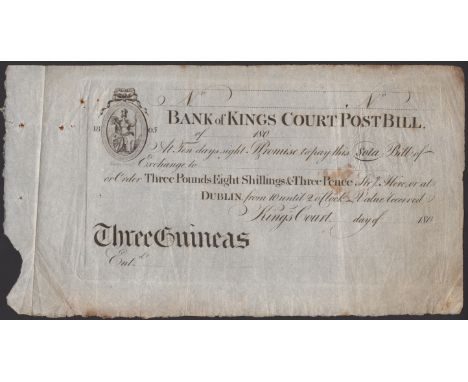 N.º N.º
18 05
BANK of KINGS COURT POST BILL.
of 180
At Ten days sight I Promise to pay this Sola Bill of
Exchange to
or Order Three Pounds Eight Shillings & Three Pence Here, or at
DUBLIN from 10 until 2 o'Clock Value received
King's Court day of 180
Three Guineas
Ent.d